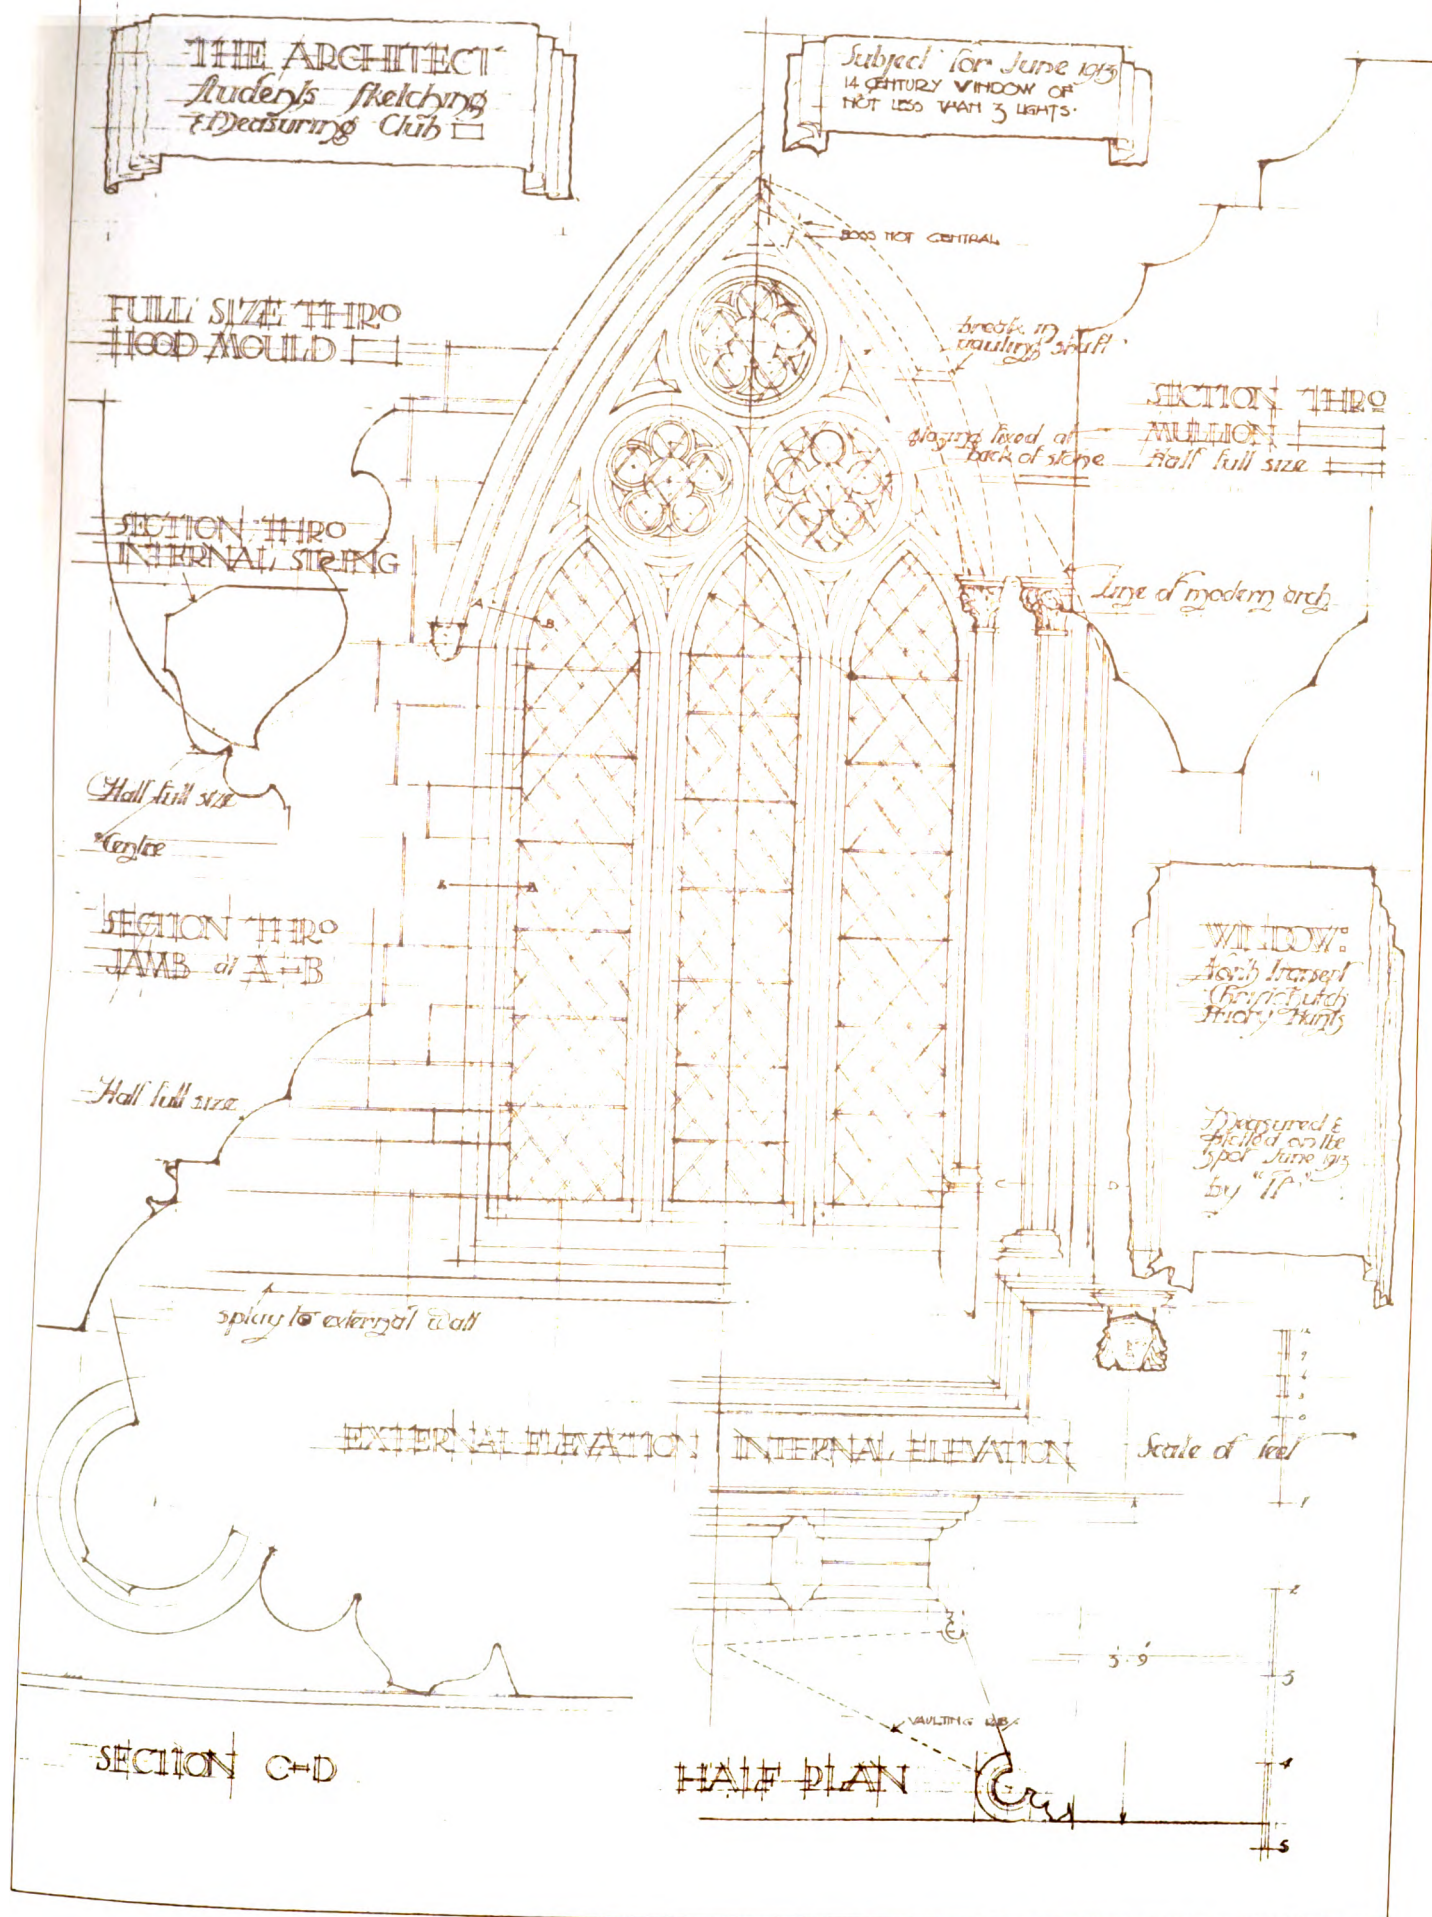 THE ARCHITECT
Students Sketching
& Measuring Club
Subject for June 1913
14 CENTURY WINDOW OF
NOT LESS THAN 3 LIGHTS.
BOSS NOT CENTRAL
FULL SIZE THRO
HOOD MOULD
break in
vaulting shaft
SECTION THRO
MULLION
Half full size
glazing fixed at
back of stone
SECTION THRO
INTERNAL STRING
Line of modern arch
A
B
Half full size
Centre
A
SECTION THRO
JAMB at A-B
WINDOW:
North transept
Christchurch
Priory Hants
Half full size
Measured &
plotted on the
spot June 1913
by "TP"
C
D
splay to external wall
12
9
6
3
0
EXTERNAL ELEVATION
INTERNAL ELEVATION
Scale of feet
1
2
3.9
3
VAULTING RIB
4
SECTION C-D
HALF PLAN
5